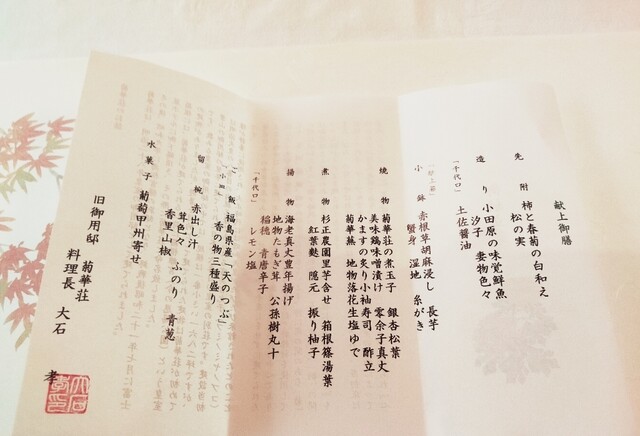 献上御膳
先 附 柿と春菊の白和え
松の実
造 り 小田原の味覚鮮魚
汐子 妻物色々
「千代口」
土佐醤油
小 鉢 赤根草胡麻浸し 長芋
蟹身 湿地 糸がき
焼 物 菊華荘の煮玉子 銀杏松葉
美味鶏味噌漬け 零余子真丈
かますの炙り小袖寿司 酢立
菊華蕪 地物落花生塩ゆで
煮 物 杉正農園里芋含せ 箱根篠湯葉
紅葉麩 隠元 振り柚子
揚 物 海老真丈豊年揚げ
地物たもぎ茸 公孫樹丸十
稲穂 青唐辛子
「千代口」
レモン塩
ご 飯 福島県産「天のつぶ」
香の物三種盛り
留 椀 赤出し汁
茸色々 ふのり 青葱
香里山椒
水菓子 葡萄甲州寄せ
旧御用邸 菊華荘
料理長 大石 孝